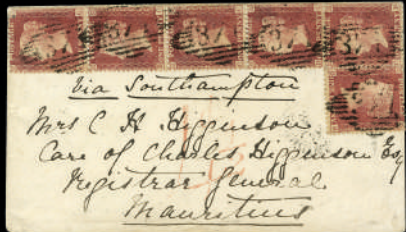 37 37 37 37 37
37
Via Southampton
Mrs C H Higginson
Care of Charles Higginson Esq
Registrar General
Mauritius